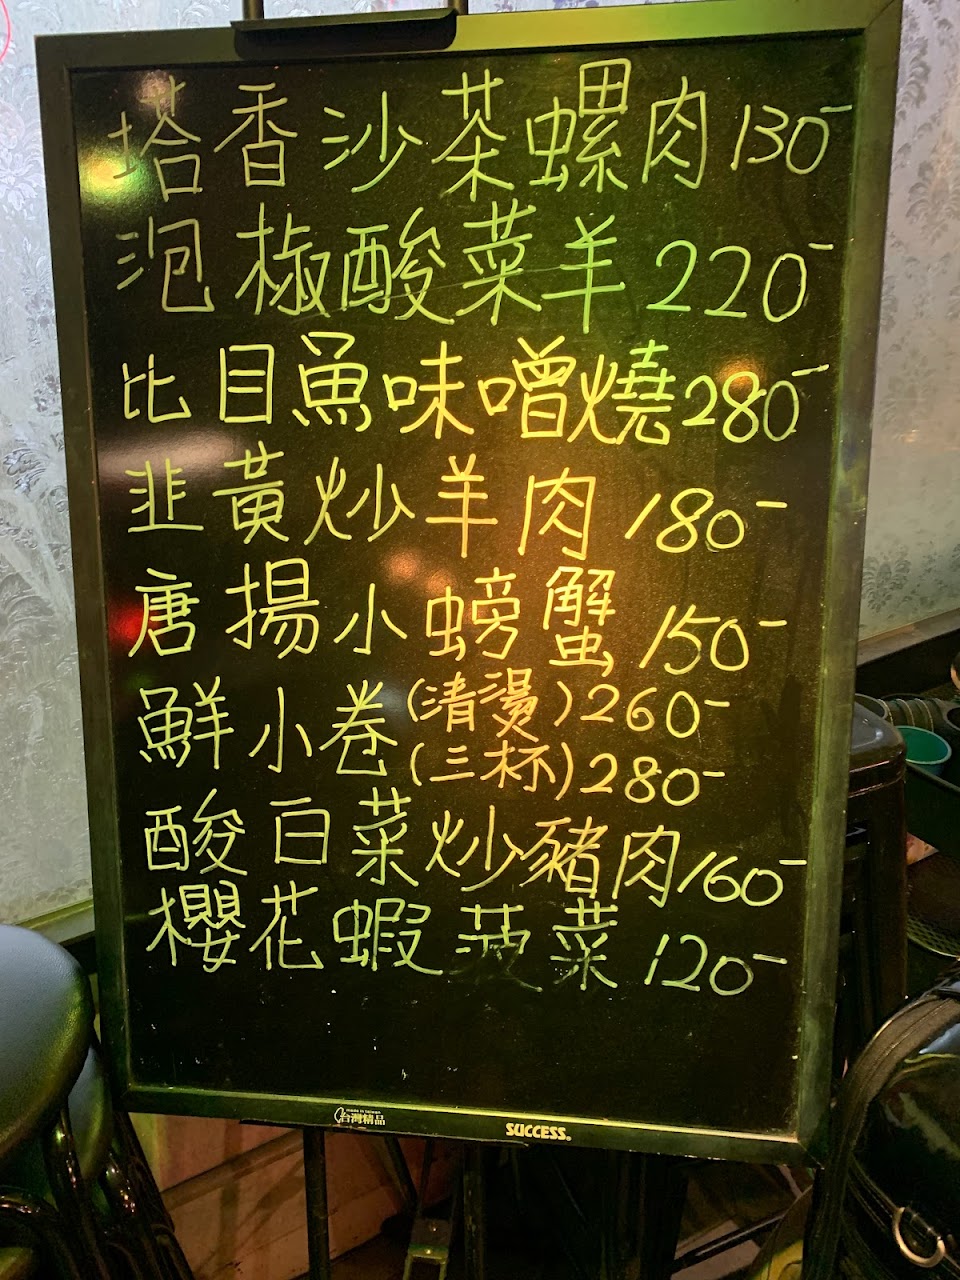 塔香沙茶螺肉130-
泡椒酸菜羊220-
比目魚味噌燒280-
韭黃炒羊肉180-
唐揚小螃蟹150-
鮮小卷(清燙)260-
(三杯)280-
酸白菜炒豬肉160-
櫻花蝦菠菜120-
made in taiwan
台灣精品
SUCCESS®